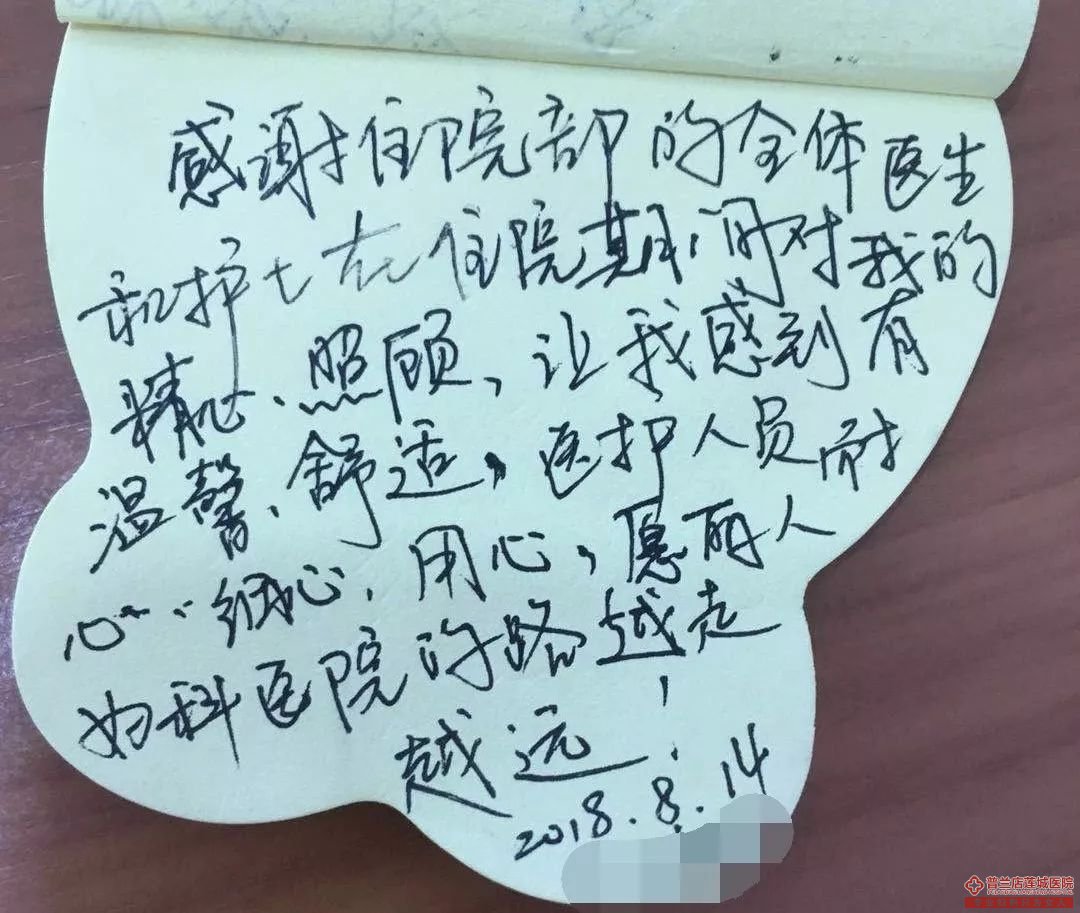 感谢住院部的全体医生
和护士在住院期间对我的
精心、照顾，让我感到有
温馨、舒适，医护人员耐
心、细心、用心，愿丽人
妇科医院的路越走
越远！
2018.8.14
普兰店莲城医院